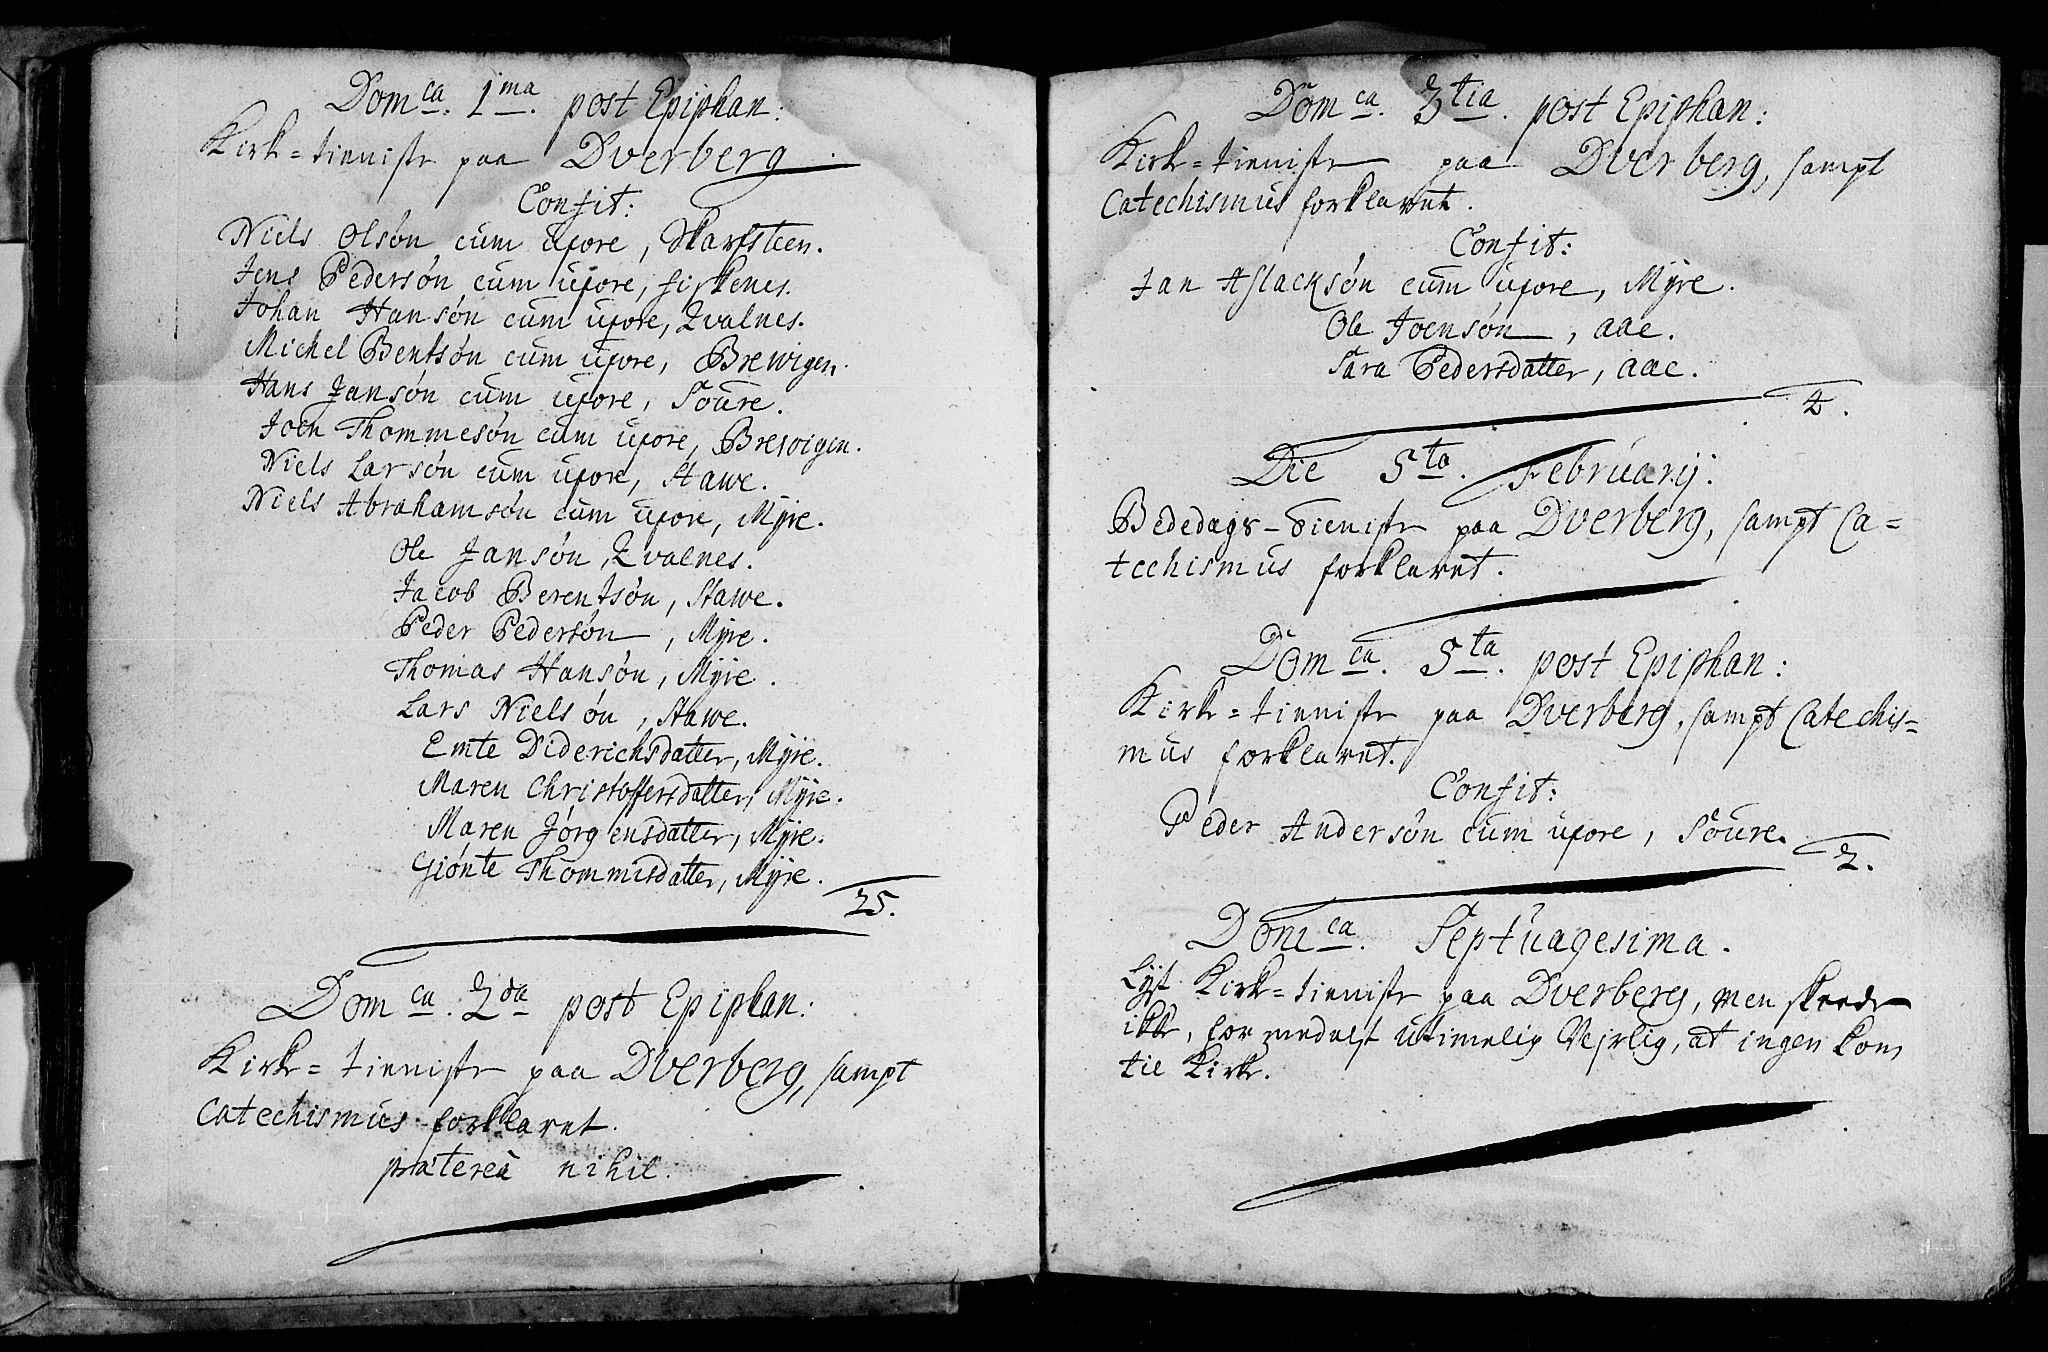 Dom ca. 1 ma. post Epiphan:
Kirke=tieniste paa Dverberg.
Confit:
Niels Olsøn cum uxore, Skarfsteen.
Jens Pedersøn cum uxore, fiskenes.
Johan Hansøn cum uxore, Qvalnes.
Michel Bentsøn cum uxore, Brewigen.
Hans Jansøn cum uxore, Soure.
Joen Thommesøn cum uxore, Brewigen.
Niels Larsøn cum uxore, Stawe.
Niels Abrahamsøn cum uxore, Myre.
Ole Jansøn, Qvalnes.
Jacob Berentsøn, Stawe.
Peder Pedersøn, Myre.
Thomas Hansøn, Myre.
Lars Nielsøn, Stawe.
Emte Diderichsdatter, Myre.
Maren Christoffersdatter, Myre.
Maren Jørgensdatter, Myre.
Giønte Thommisdatter, Myre.
25.
Dom ca. 2 da post Epiphan:
Kirke=tieniste paa Dverberg, sampt
Catechismus forklaret.
præterea nihil.
Dom ca. 3 tia. post Epiphan:
Kirke=tieniste paa Dverberg, sampt
Catechismus forklaret.
Confit:
Jan Aslacksøn cum uxore, Myre.
Ole Joensøn, aae.
Sara Pedersdatter, aae.
4.
Die 5 ta. February:
Bededags=tieniste paa Dverberg, sampt Ca=
techismus forklaret.
Dom ca. 5 ta. post Epiphan:
Kirke=tieniste paa Dverberg, sampt Catechis=
mus forklaret.
Confit:
Peder Andersøn cum uxore, Soure.
2.
Dom ca. Septuagesima.
Lyst Kirke=tieniste paa Dverberg, men skeede
ikke, formedelst Utimelig Vejrlig, at ingen kom
til Kirke.